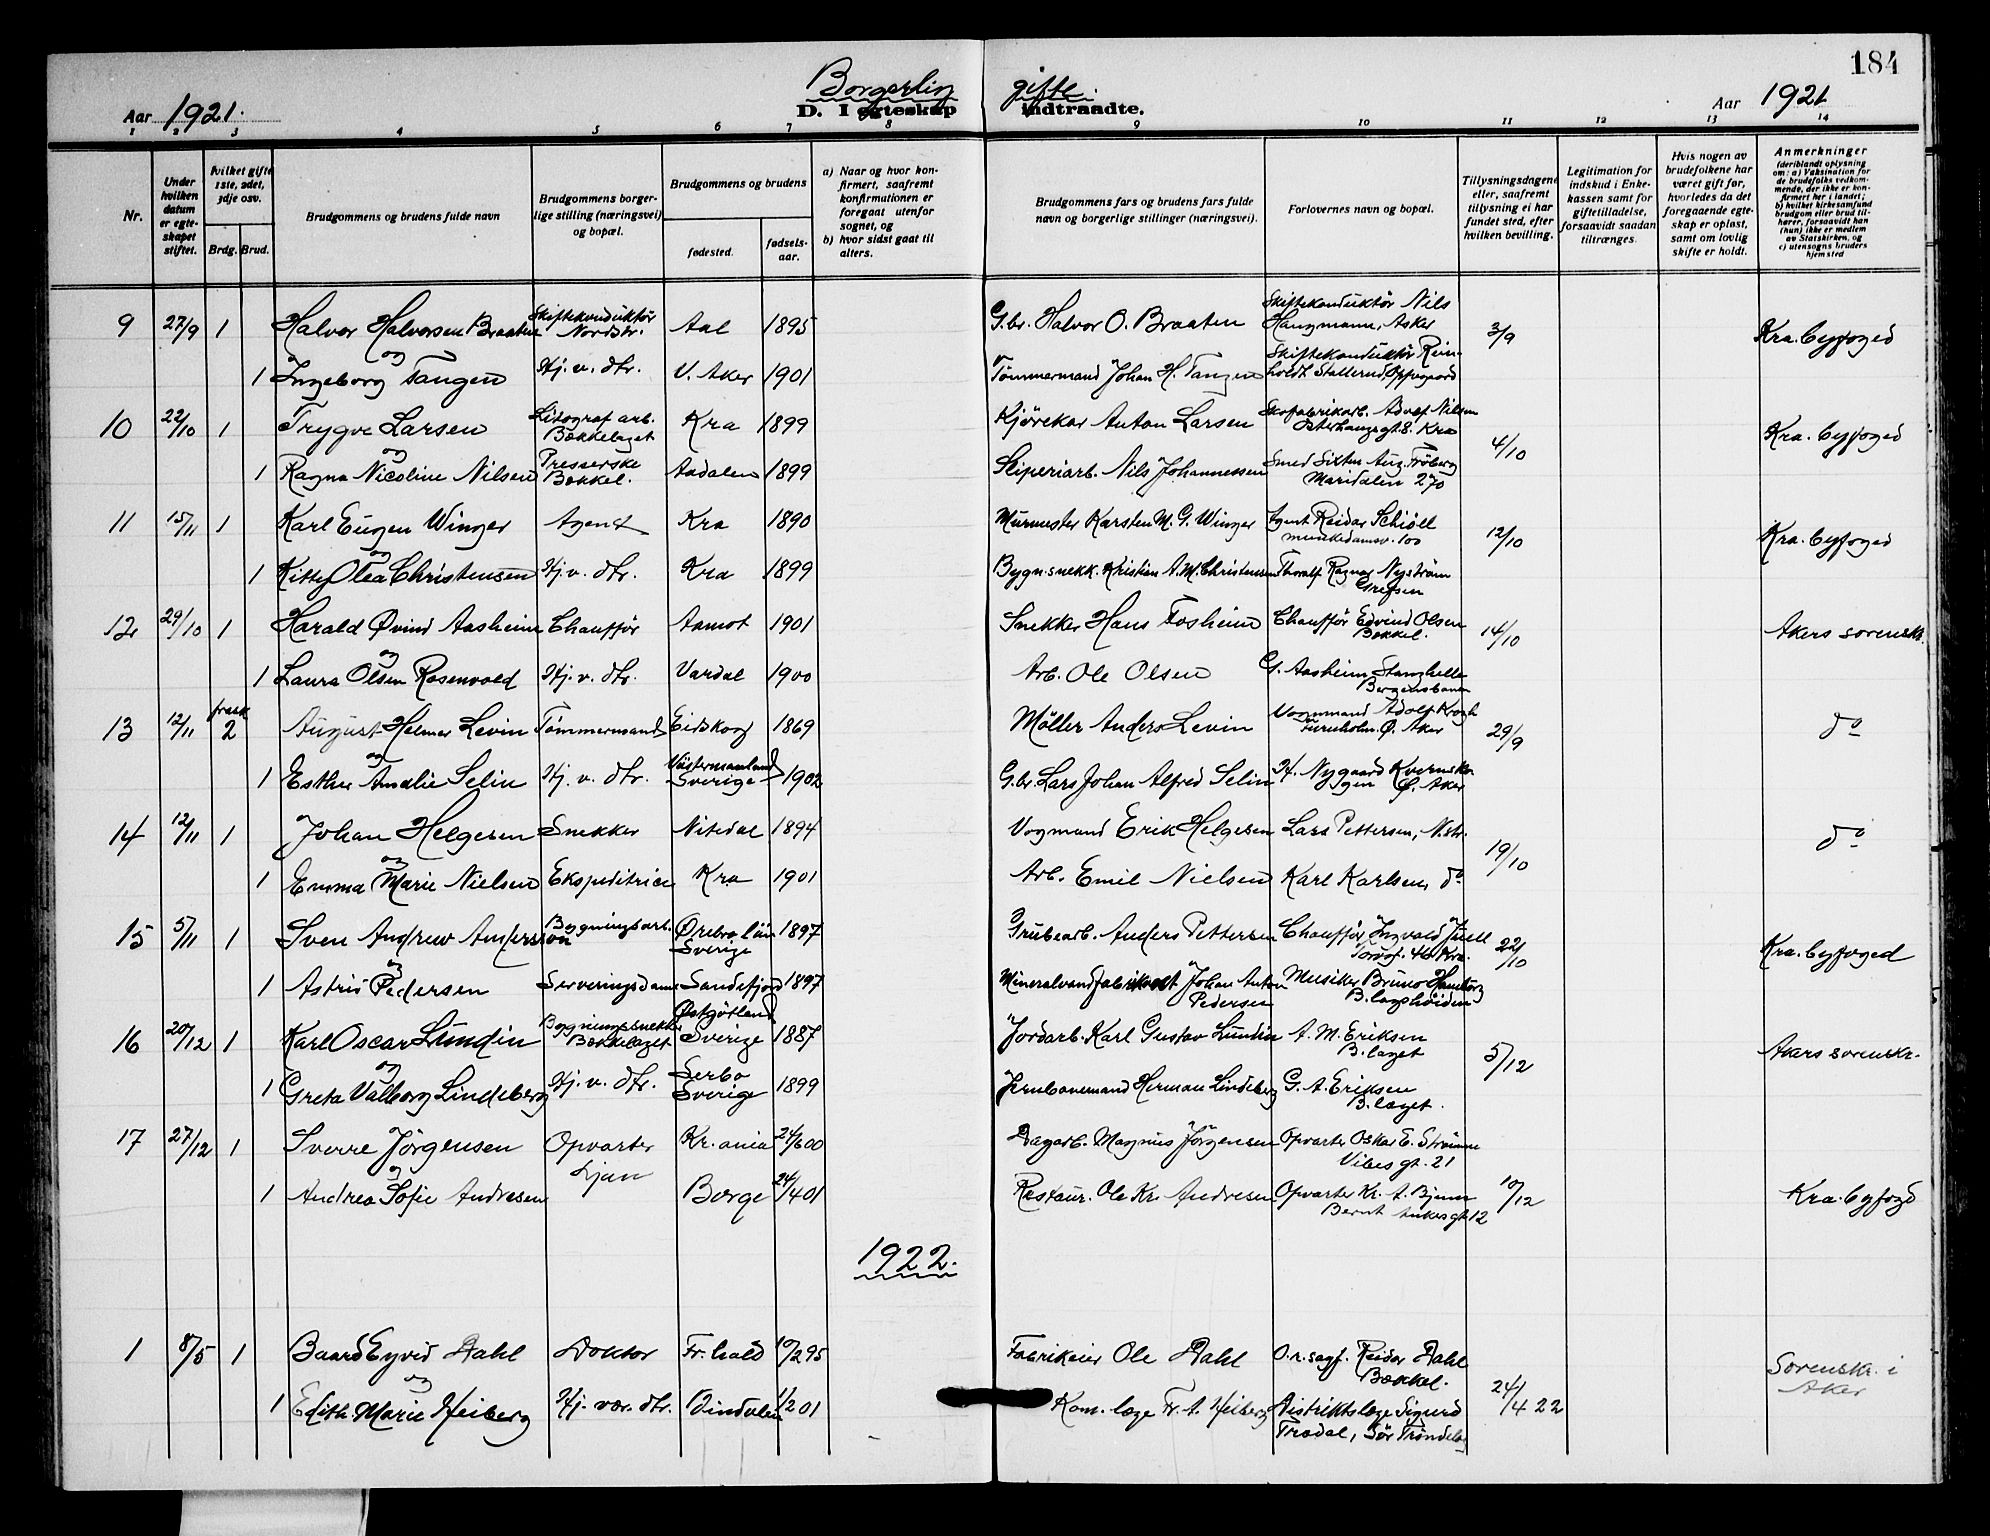 184
Borgerlig gifte.
Aar 1921. D. I egteskap indtraadte. Aar 1921
1 2 3 4 5 6 7 8 9 10 11 12 13 14
Nr.
Under hvilken datum er egteskapet stiftet.
hvilket gifte 1ste, 2det, 3dje osv.
Brdg. Brud.
Brudgommens og brudens fulde navn
Brudgommens borgerlige stilling (næringsvei) og bopæl.
Brudgommens og brudens
fødested. fødselsaar.
a) Naar og hvor konfirmert, saafremt konfirmationen er foregaat utenfor sognet, og
b) hvor sidst gaat til alters.
Brudgommens fars og brudens fars fulde navn og borgerlige stillinger (næringsvei).
Forlovernes navn og bopæl.
Tillysningsdagene eller, saafremt tillysning ei har fundet sted, efter hvilken bevilling.
Legitimation for indskud i Enkekassen samt for giftetilladelse, forsaavidt saadan tiltrænges.
Hvis nogen av brudefolkene har været gift før, hvorledes da det foregaaende egteskap er opløst, samt om lovlig skifte er holdt.
Anmerkninger (deriblandt oplysning om: a) Vaksination for de brudefolks vedkommende, der ikke er konfirmert her i landet; b) hvilket kirkesamfund brudgom eller brud tilhører, forsaavidt han (hun) ikke er medlem av Statskirken, og c) utensogns bruders hjemsted
9 27/9 1 Halvor Halvorsen Braaten Skiftekonduktør Nordstr. Aal 1895 G.br. Halvor O. Braaten Skiftekonduktør Nils Haugmann, Asker 3/9 Kra. byfoged
og
1 Ingeborg Tangen Hj. v. dtr. V. Aker 1901 Tømmermand Johan H. Tangen Skiftekonduktør Reinholdt Stallerud, Oppegaard
10 22/10 1 Trygve Larsen Litograf arb. Bækkelaget Kra 1899 Kjørekar Anton Larsen Skofabrikarb. Adolf Nilsen Kra 4/10 Kra. byfoged
og
1 Ragna Nicoline Nilsen Presserske Bækkel. Aadalen 1899 Sliperiarb. Nils Johannessen Smed Aug. Frøberg Maridalen 270
11 15/11 1 Karl Eugen Winger Agent Kra 1890 Murmester Karsten M. G. Winger Agent Reidar Schiøll Munkedamsv. 100 12/10 Kra. byfoged
og
1 Kitty Olea Christensen Hj. v. dtr. Kra 1899 Bygn.snekk. Kristian A. M. Christensen Thoralf Ragnar Nystrøm Grefsen
12 29/10 1 Harald Øvind Aasheim Chauffør Aamot 1901 Snekker Hans Fosheim Chauffør Edvind Olsen Bækkel. 14/10 Akers sorenskr.
og
1 Laura Olsen Rosenvold Hj. v. dtr. Vardal 1900 Arb. Ole Olsen G. Aasheim Stanghelle Bergensbanen
13 12/11 frask 2 August Helmer Levin Tømmermand Eidskog 1869 Møller Anders Levin Vognmand Adolf Krogh Furuholm Ø. Aker 29/9 do
og
1 Esther Amalie Selin Hj. v. dtr. Västermanland Sverige 1902 G.br. Lars Johan Alfred Selin H. Nygaard Ø. Aker
14 12/11 1 Johan Helgesen Snekker Nitedal 1894 Vogmand Erik Helgesen Lars Pettersen, N.str. 19/10 do
og
1 Emma Marie Nielsen Ekspeditrice Kra 1901 Arb. Emil Nielsen Karl Karlsen, do
15 5/11 1 Sven Andrew Andersson Bygningsarb. Ørebro län Sverige 1897 Grubearb. Anders Pettersen Chauffør Ingvald Juell Torvg. 46 Kra. 22/10 Kra. byfoged
og
1 Astrid Pedersen Serveringsdame Sandefjord 1897 Mineralvandfabrikant Johan Anton Pedersen Musiker Bruno Hamborg B.lagshøiden
16 20/12 1 Karl Oscar Lundin Bygningssnekker Bækkelaget Østgötland Sverige 1887 Jordarb. Karl Gustav Lundin A. M. Eriksen B.laget 5/12 Akers sorenskr.
og
1 Greta Valborg Lindeberg Hj. v. dtr. Serbo Sverige 1899 Jernbanemand Herman Lindeberg G. A. Eriksen B.laget.
17 27/12 1 Sverre Jørgensen Opvarter Ljan Kr.ania 24/6 00 Dagarb. Magnus Jørgensen Opvarter Oskar E. Strømme Vibesgt. 21 10/12 Kra. byfogd
og
1 Andrea Sofie Andresen Borge 24/4 01 Restaur. Ole Kr. Andresen Opvarter Kr. A. Bjune Bernt Ankersgt. 12
1922.
1 8/5 1 Baard Eyvid Dahl Doktor Fr.hald 10/2 95 Fabrikeier Ole Dahl O.r.sagf. Reidar Dahl Bækkel. 24/4 22 Sorenskr. i Aker
og
1 Edith Marie Heiberg Hj. vær. dtr. Vindalen 1/2 01 Kom. læge Fr. A. Heiberg Distriktslæge Sigurd Trødal, Sør Trøndelag